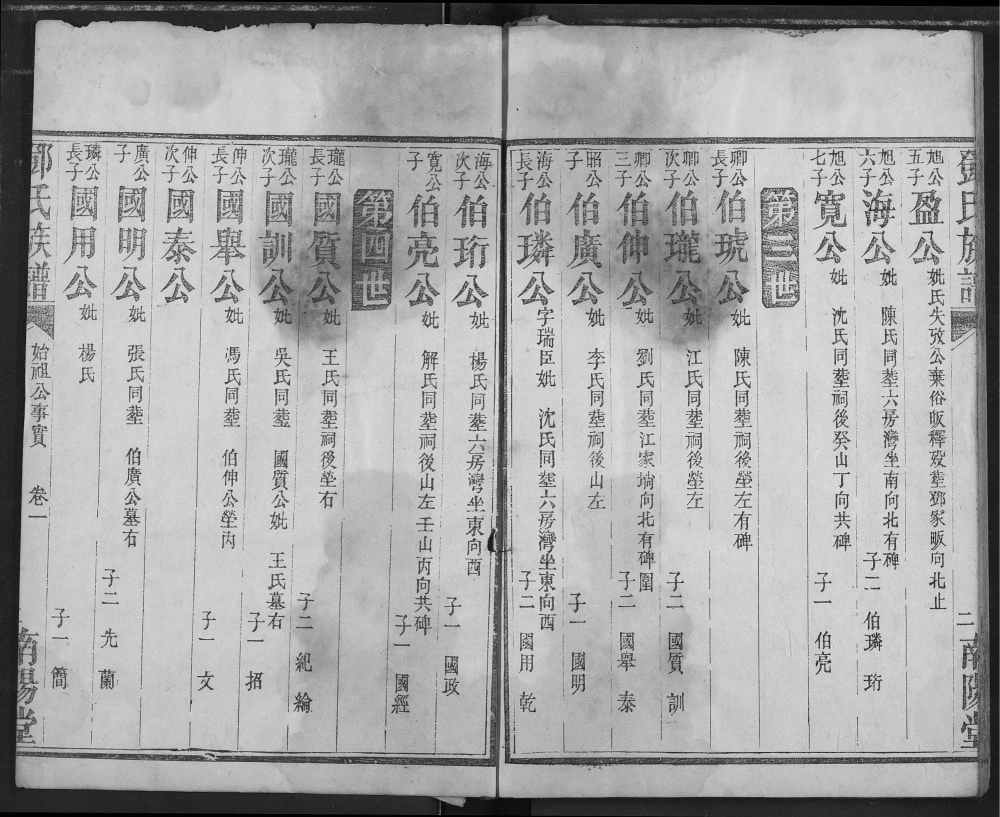 鄧氏族譜
二
南陽堂
旭公五子 盈公 妣氏失攷公棄俗皈釋歿塟鄧家畈向北止
旭公六子 海公 妣 陳氏同塟六房灣坐南向北有碑 子二 伯璘 珩
旭公七子 寬公 妣 沈氏同塟祠後癸山丁向共碑 子一 伯亮
第三世
卿公長子 伯琥公 妣 陳氏同塟祠後塋左有碑
卿公次子 伯瓏公 妣 江氏同塟祠後塋左 子二 國質 訓
卿公三子 伯伸公 妣 劉氏同塟江家塆向北有碑圍 子二 國舉 泰
昭公子 伯廣公 妣 李氏同塟祠後山左 子一 國明
海公長子 伯璘公 字瑞臣妣 沈氏同塟六房灣坐東向西 子二 國用 乾
海公次子 伯珩公 妣 楊氏同塟六房灣坐東向西 子一 國政
寬公子 伯亮公 妣 解氏同塟祠後山左壬山丙向共碑 子一 國經
第四世
瓏公長子 國質公 妣 王氏同塟祠後塋右 子二 紀 綸
瓏公次子 國訓公 妣 吳氏同塟 國質公妣 王氏墓右 子一 招
伸公長子 國舉公 妣 馮氏同塟 伯伸公塋內 子一 文
伸公次子 國泰公
廣公子 國明公 妣 張氏同塟 伯廣公墓右 子二 先 蘭
璘公長子 國用公 妣 楊氏 子一 簡
鄧氏族譜
始祖公事實 卷一
南陽堂